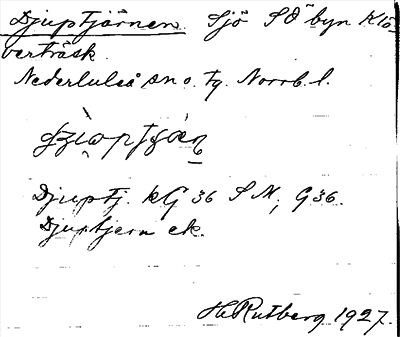 Djuptjärnen. Sjö S Ö byn Klö-
verträsk.
Nederluleå sn o. tg. Norrb. l.
Djuptj. kG 36 S M; G36.
Djuptjern ek.
H. Rutberg 1927.